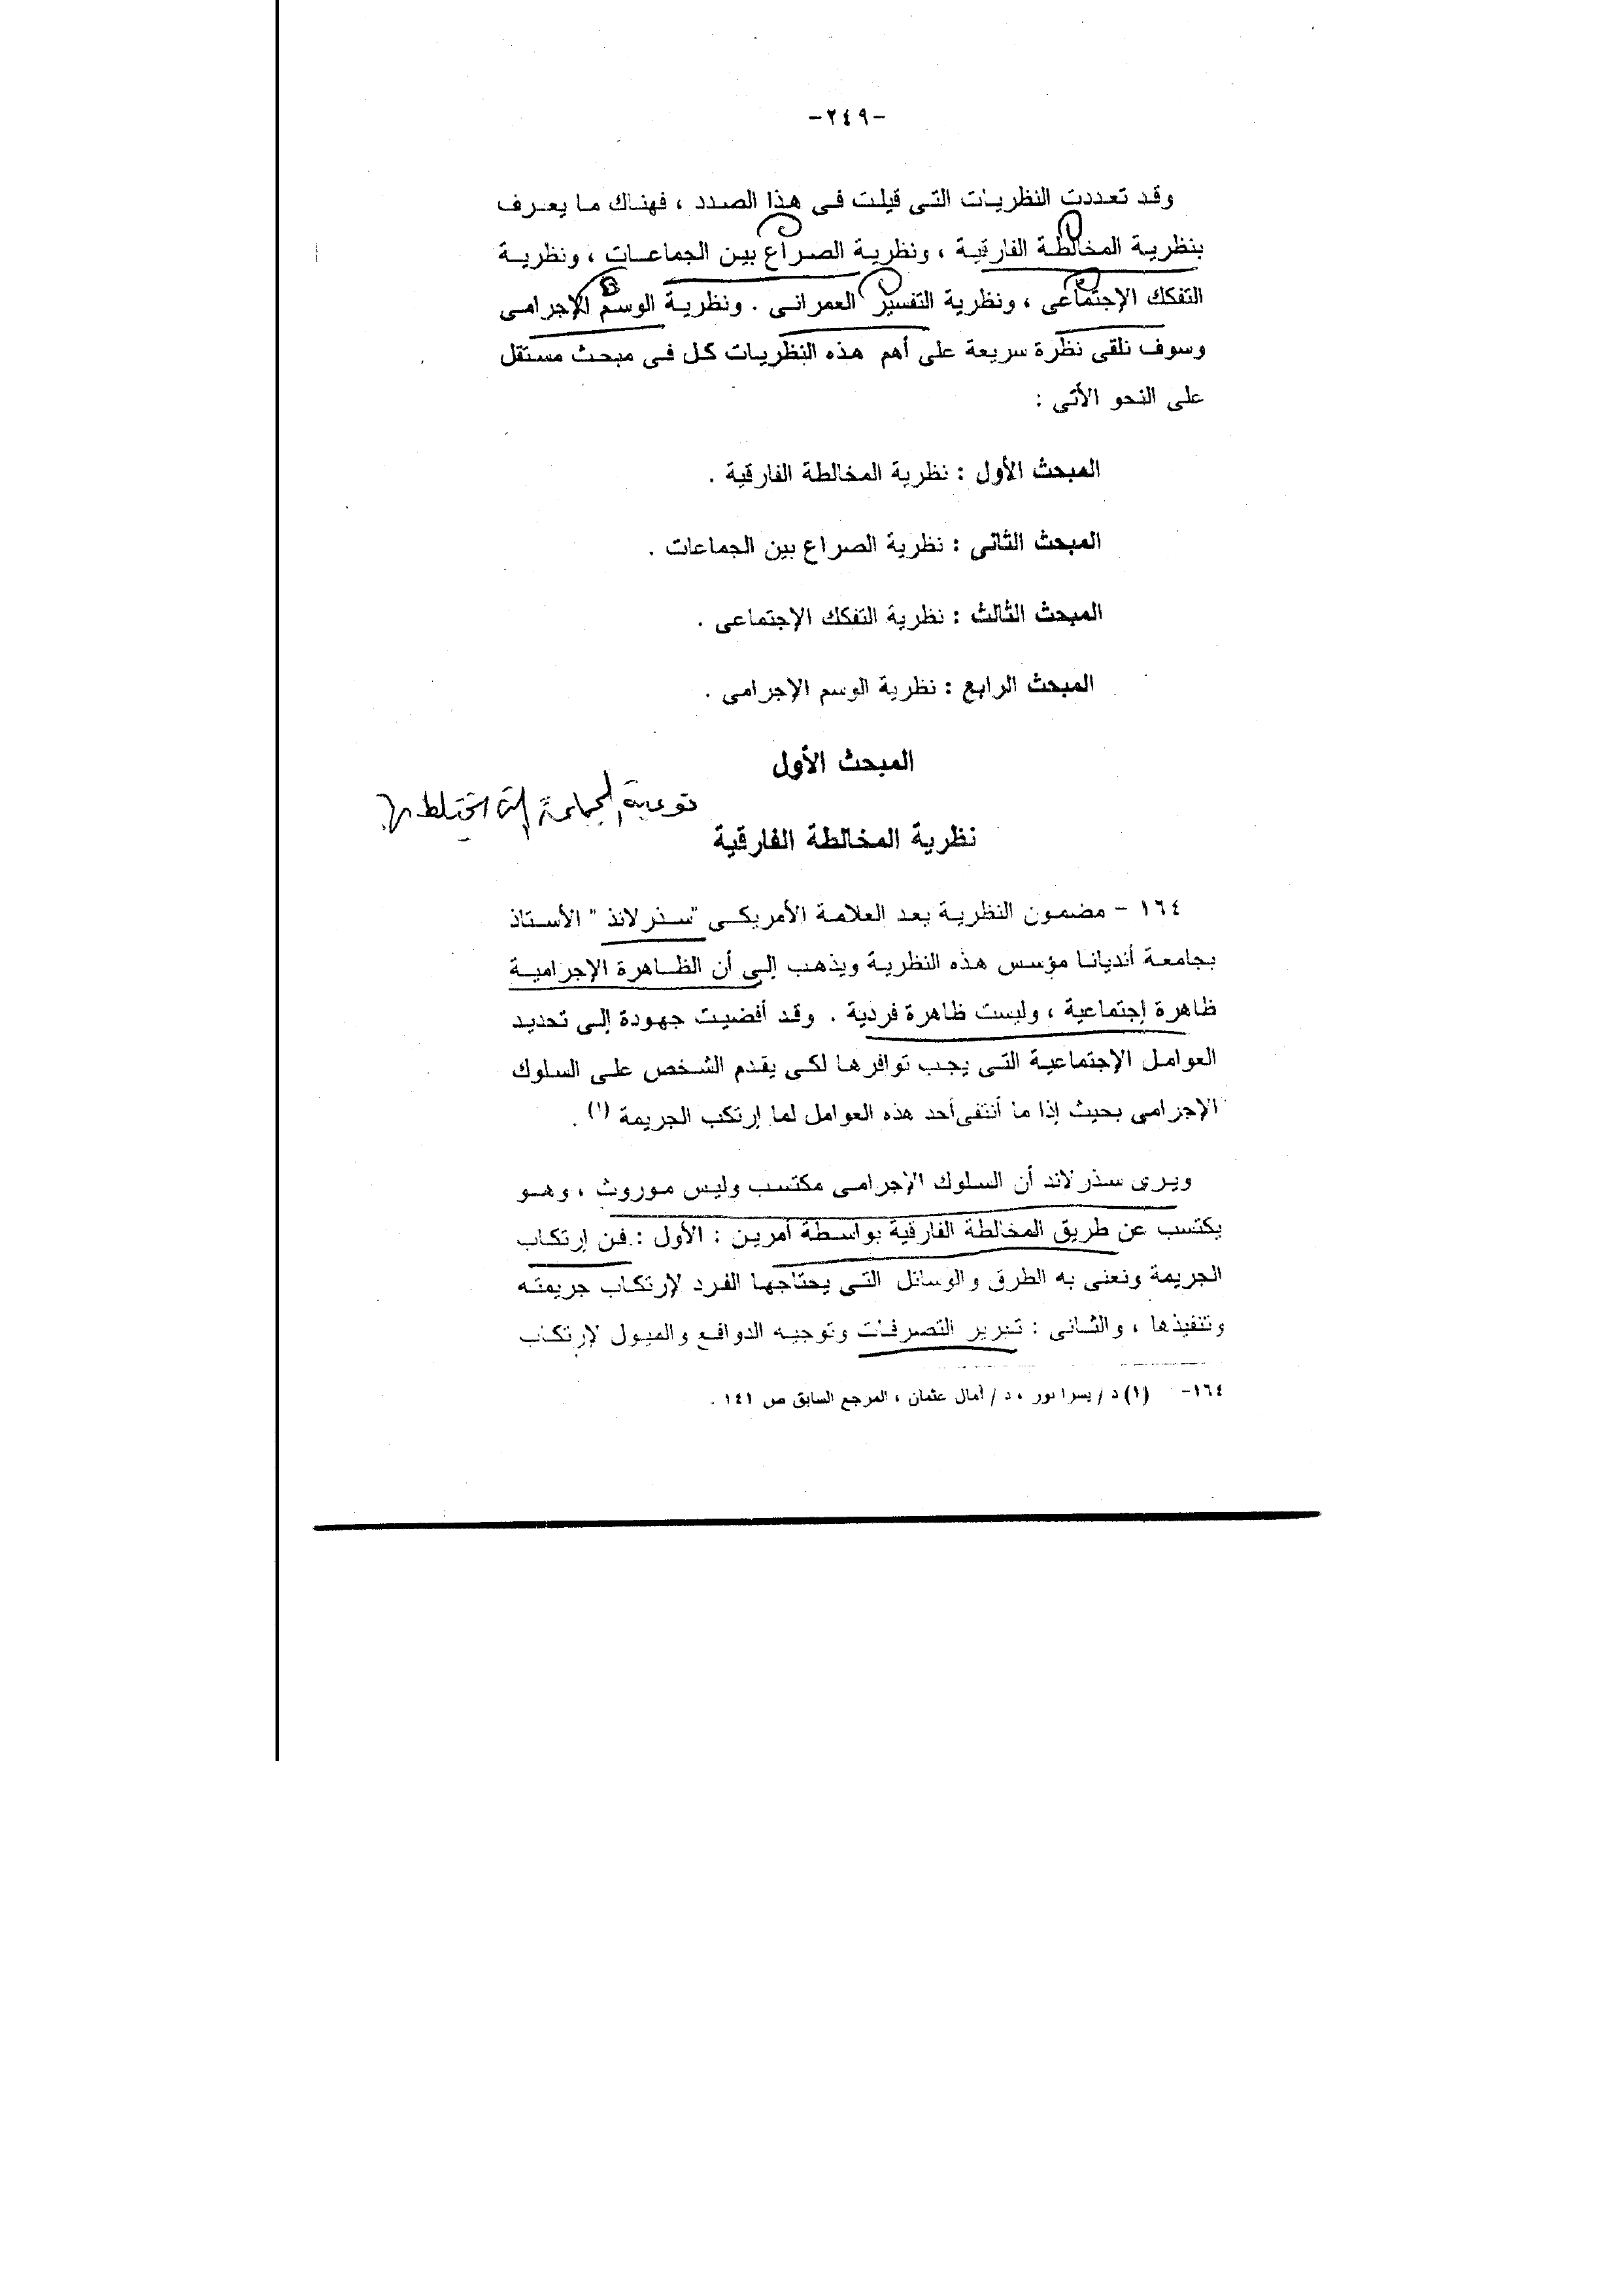 -٢٤٩-
وقد تعددت النظريات التى قيلت فى هذا الصدد ، فهناك ما يعرف
بنظرية المخالطة الفارقية ، ونظرية الصراع بين الجماعات ، ونظرية
التفكك الإجتماعى ، ونظرية التفسير العمرانى . ونظرية الوسم الإجرامى
وسوف نلقى نظرة سريعة على أهم هذه النظريات كل فى مبحث مستقل
على النحو الأتى :
المبحث الأول : نظرية المخالطة الفارقية .
المبحث الثانى : نظرية الصراع بين الجماعات .
المبحث الثالث : نظرية التفكك الإجتماعى .
المبحث الرابع : نظرية الوسم الإجرامى .
المبحث الأول
نوعية الجماعة التى اختلط بها
نظرية المخالطة الفارقية
١٦٤ - مضمون النظرية يعد العلامة الأمريكى "سذرلاند" الأستاذ
بجامعة أنديانا مؤسس هذه النظرية ويذهب إلى أن الظاهرة الإجرامية
ظاهرة إجتماعية ، وليست ظاهرة فردية . وقد أفضيت جهودة إلى تحديد
العوامل الإجتماعية التى يجب توافرها لكى يقدم الشخص على السلوك
الإجرامى بحيث إذا ما أنتفى أحد هذه العوامل لما إرتكب الجريمة (١) .
ويرى سذرلاند أن السلوك الإجرامى مكتسب وليس موروث ، وهو
يكتسب عن طريق المخالطة الفارقية بواسطة أمرين : الأول : فن إرتكاب
الجريمة ونعنى به الطرق والوسائل التى يحتاجها الفرد لإرتكاب جريمته
وتنفيذها ، والثانى : تبرير التصرفات وتوجيه الدوافع والميول لإرتكاب
١٦٤- (١) د / يسر انور ، د / أمال عثمان ، المرجع السابق ص ١٤١ .